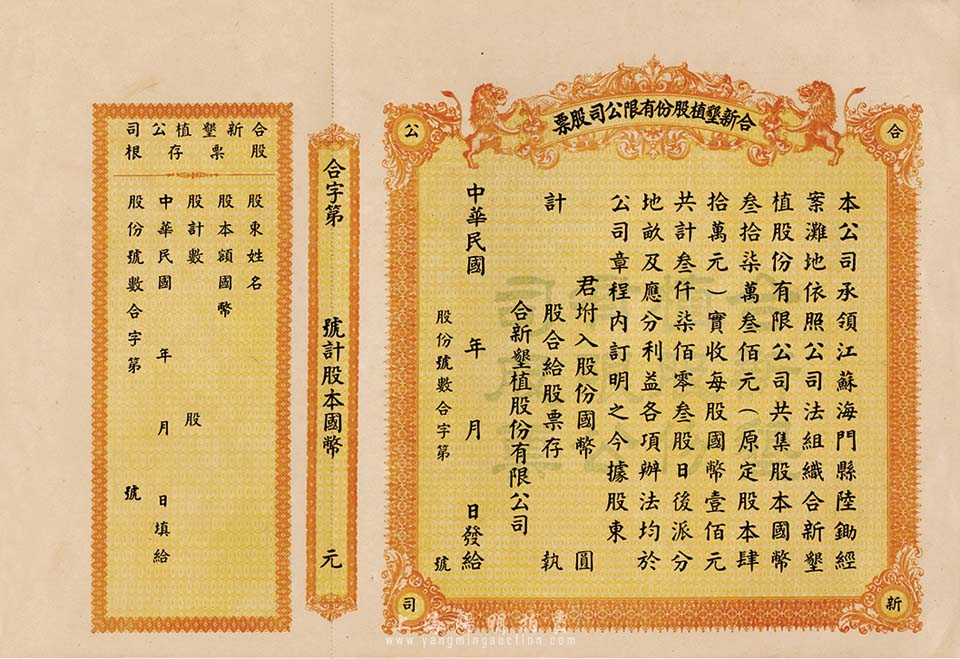 合新墾植股份有限公司股票
合
新
公
司
本公司承領江蘇海門縣陸鋤經
案灘地依照公司法組織合新墾
植股份有限公司共集股本國幣
叁拾柒萬叁佰元（原定股本肆
拾萬元）實收每股國幣壹佰元
共計叁仟柒佰零叁股日後派分
地畝及應分利益各項辦法均於
公司章程內訂明之今據股東
君坿入股份國幣 圓
計 股合給股票存 執
合新墾植股份有限公司
中華民國 年 月 日發給
股份號數合字第 號
合字第 號計股本國幣 元
合新墾植公司
股票存根
股東姓名
股本額國幣
股計數 股
中華民國 年 月 日填給
股份號數合字第 號
上海陽明拍賣
www.yangmingauction.com